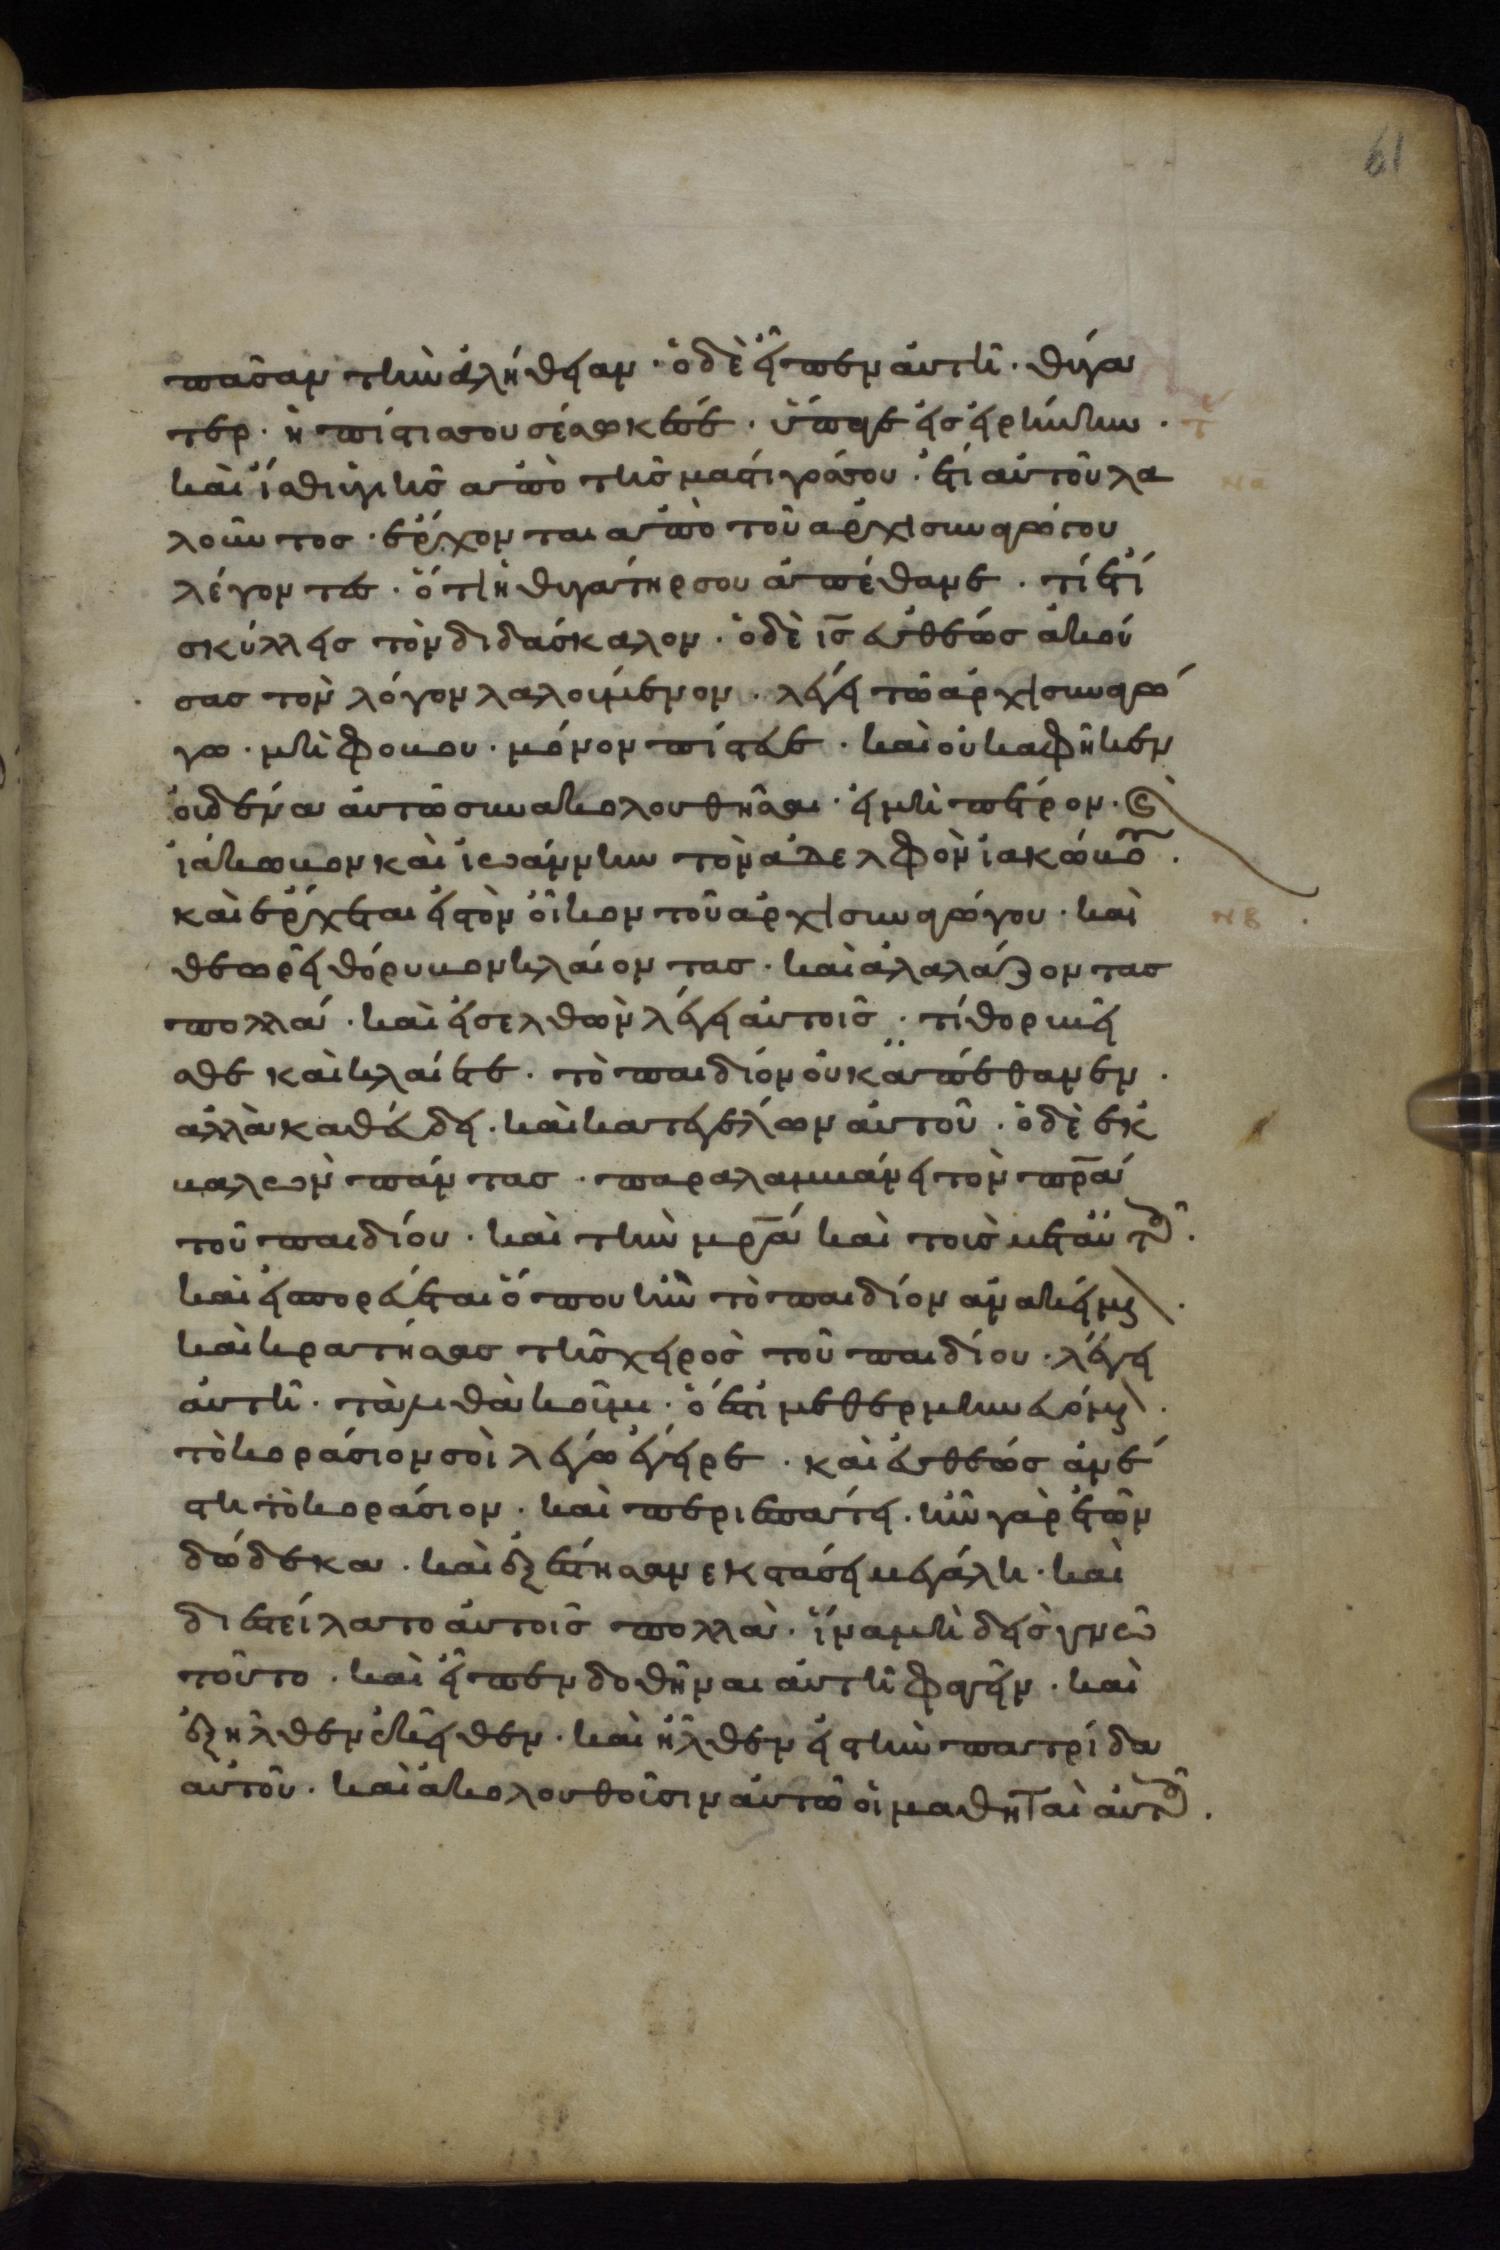 61
πᾶσαν τὴν ἀλήθειαν · ὁ δὲ εἶπεν αὐτῆ · θύγα
τερ · ἡ πίστις σου σέσωκέ σε · ὕπαγε εἰς εἰρήνην ·
καὶ ἴσθι ὑγιὴς ἀπὸ τῆς μάστιγός σου · ἔτι αὐτοῦ λα
λοῦντος · ἔρχονται ἀπὸ τοῦ ἀρχισυναγώγου
λέγοντες · ὅτι ἡ θυγάτηρ σου ἀπέθανε · τί ἔτι
σκύλλεις τὸν διδάσκαλον · ὁ δὲ ις εὐθέως ἀκού
σας τὸν λόγον λαλούμενον · λέγει τῶ ἀρχισυναγώ
γω · μὴ φοβου · μόνον πίστευε · καὶ οὐκ ἀφῆκεν
οὐδένα αὐτῶ συνακολουθῆσαι · εἰ μὴ πέτρον · καὶ
ἰάκωβον καὶ ἰωάννην τὸν ἀδελφὸν ἰακώβου ·
καὶ ἔρχεται εἰς τὸν οἶκον τοῦ ἀρχισυναγώγου · καὶ
θεωρεῖ θόρυβον κλαίοντας · καὶ ἀλαλάζοντας
πολλά · καὶ εἰσελθὼν λέγει αὐτοῖς · τί θορυβεῖ
σθε καὶ κλαίετε · τὸ παιδίον οὐκ ἀπέθανεν ·
ἀλλὰ καθεύδει · καὶ κατεγέλων αὐτοῦ · ὁ δὲ ἐκ
βαλὼν πάντας · παραλαμβάνει τὸν πρα
τοῦ παιδίου · καὶ τὴν μρα καὶ τοὺς μετ αὐτοῦ ·
καὶ εἰσπορεύεται ὅπου ἦν τὸ παιδίον ἀνακείμενον ·
καὶ κρατήσας τῆς χειρὸς τοῦ παιδίου · λέγει
αὐτῆ · ταλιθὰ κοῦμι · ὅ ἐστι μεθερμηνευόμενον ·
τὸ κοράσιον σοὶ λέγω ἔγειρε · καὶ εὐθέως ἀνέ
στη τὸ κοράσιον · καὶ περιεπάτει · ἦν γὰρ ἐτῶν
δώδεκα · καὶ ἐξέστησαν ἐκστάσει μεγάλη · καὶ
διεστείλατο αὐτοῖς πολλὰ · ἵνα μὴδεὶς γνῶ
τοῦτο · καὶ εἶπεν δοθῆναι αὐτῆ φαγεῖν · καὶ
ἐξῆλθεν ἐκεῖθεν · καὶ ἦλθεν εἰς τὴν πατρίδα
αὐτοῦ · καὶ ἀκολουθοῦσιν αὐτῶ οἱ μαθηταὶ αὐτοῦ ·